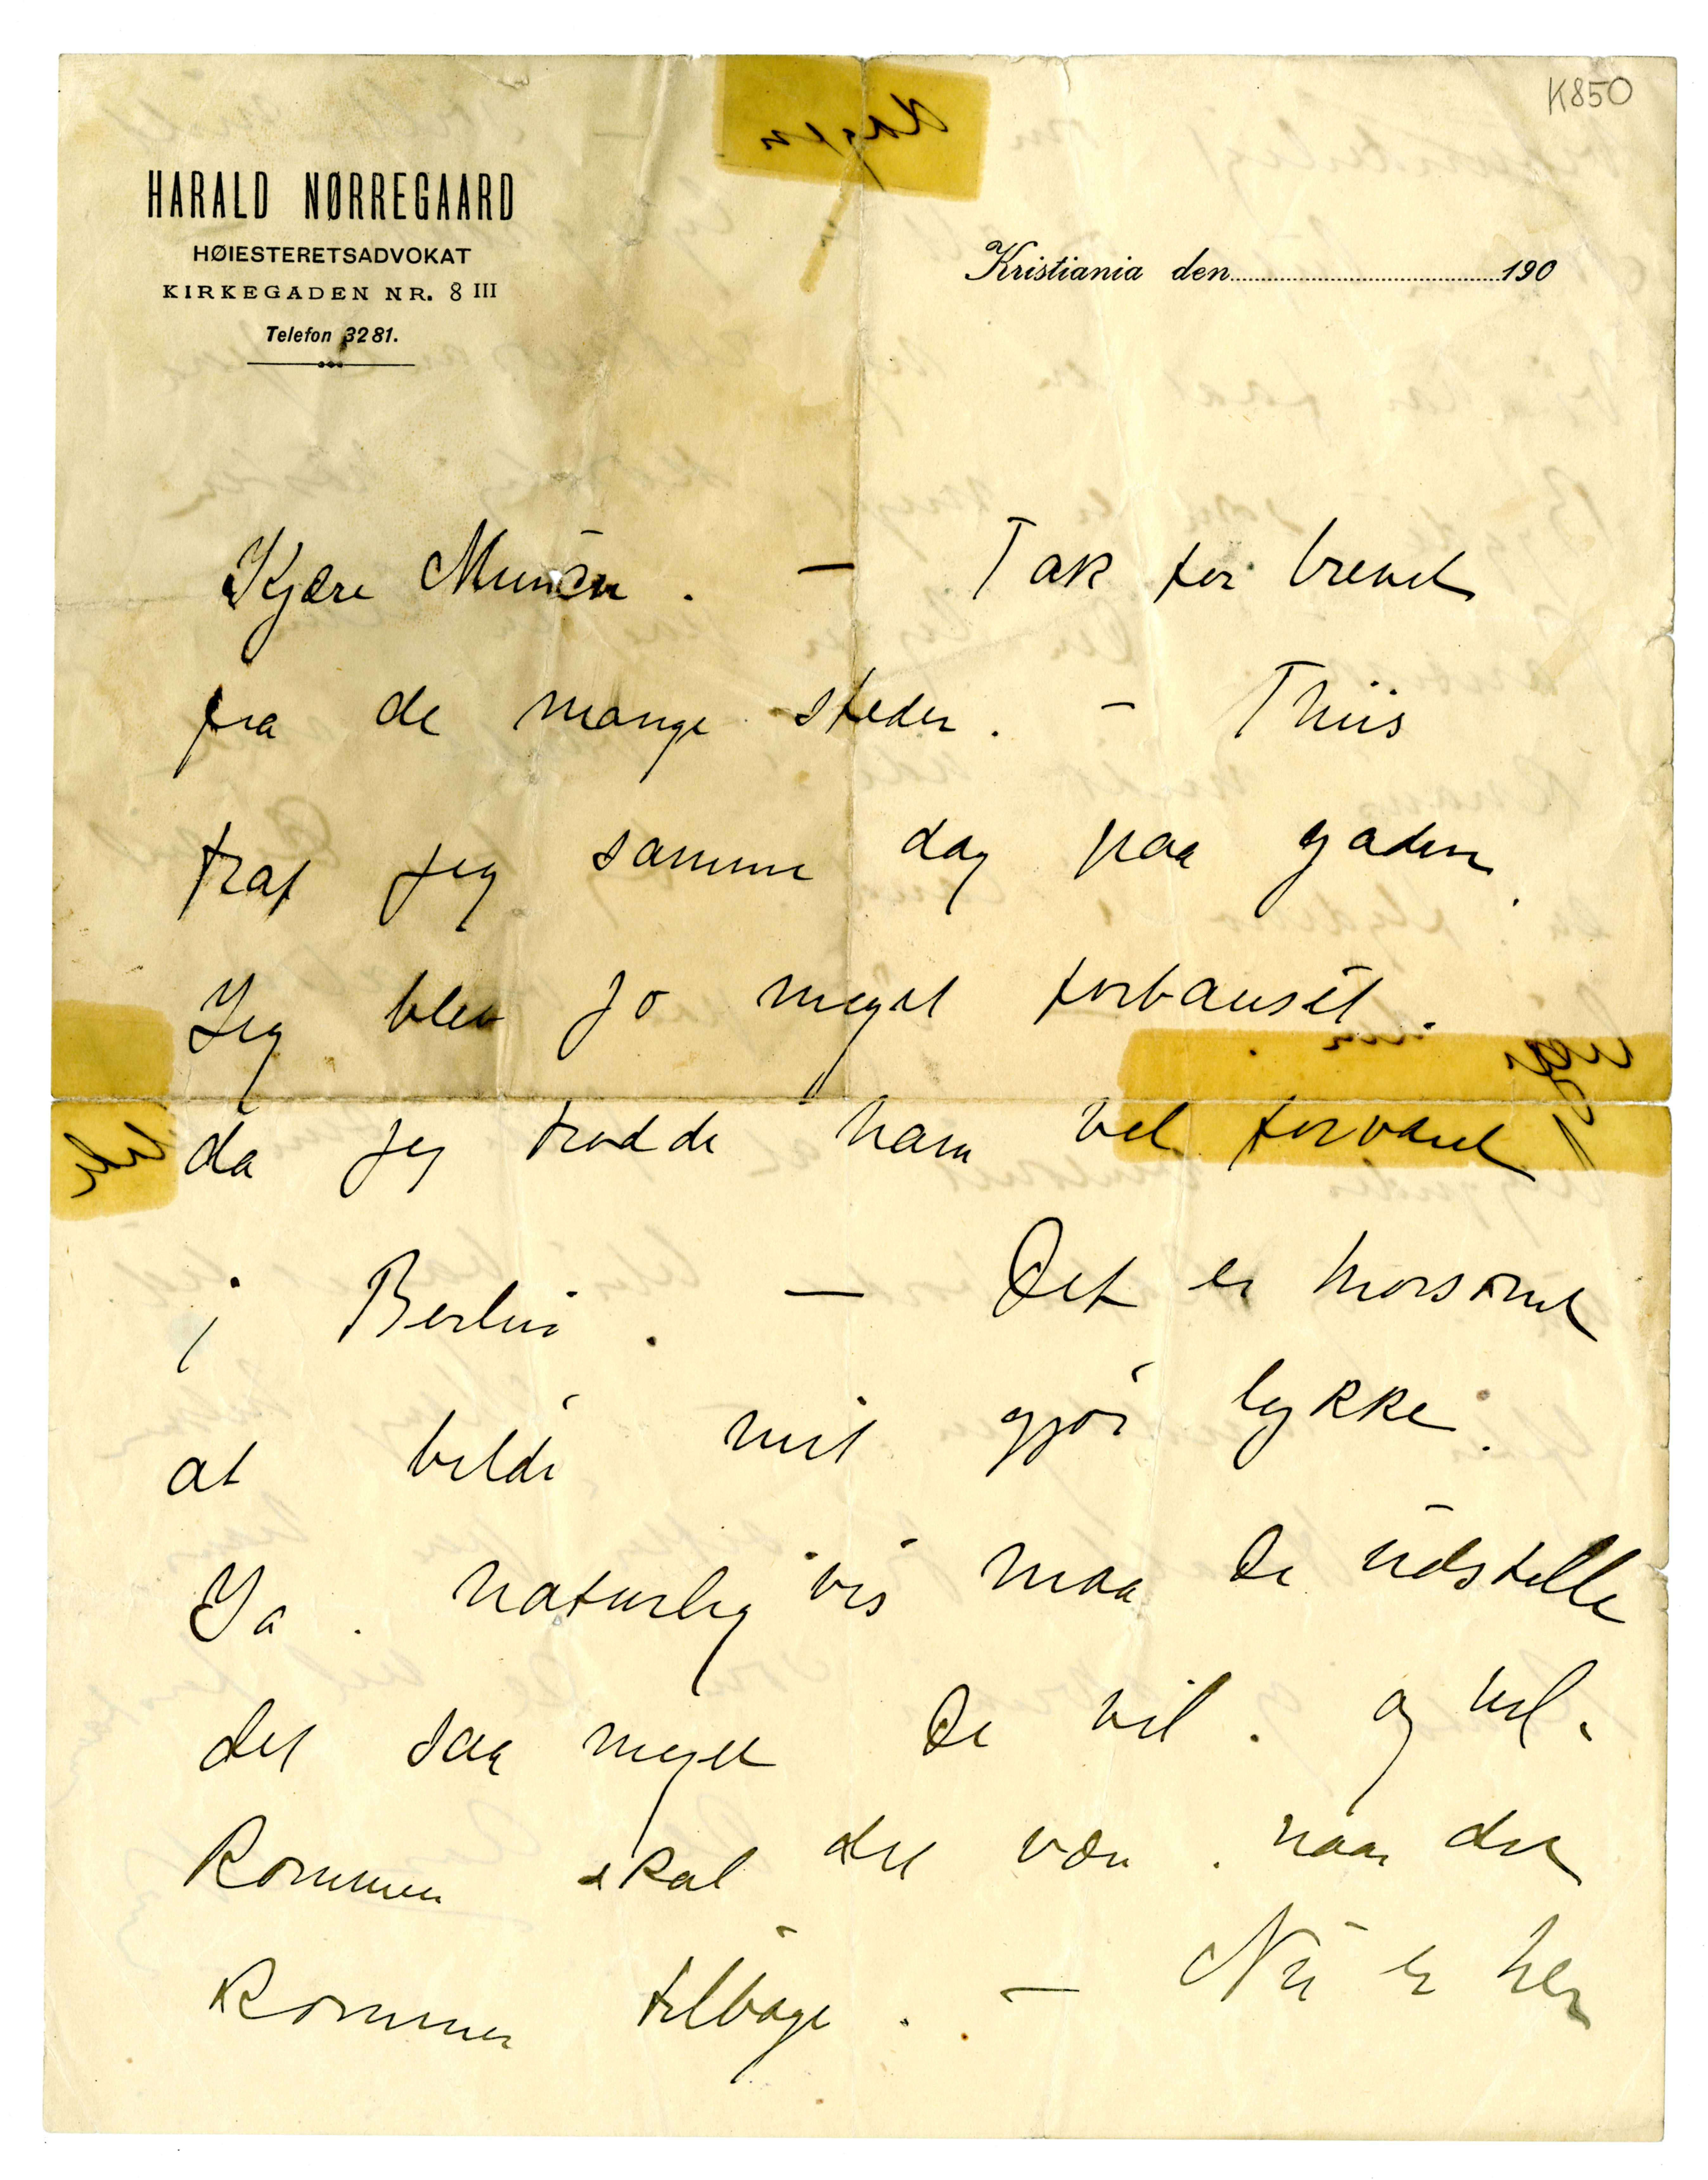 K850
HARALD NØRREGAARD
HØIESTERETSADVOKAT
KIRKEGADEN NR. 8 III
Telefon 3281.
Kristiania den 190
Kjære Munch. — Tak for brevet
fra de mange steder. – Thiis
traf jeg samme dag paa gaden.
Jeg blev jo meget forbauset.
da jeg trodde ham vel forvaret
i Berlin. — Det er morsomt
at bildet mit gjør lykke.
Ja. naturligvis maa De udstille
det saa meget De vil. og vel-
kommen skal det være. naar det
kommer tilbage. — Nu er her